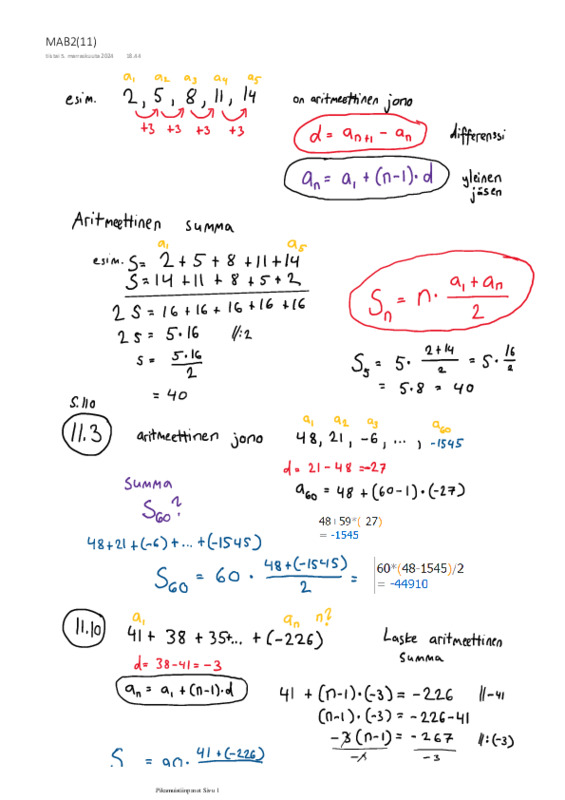 MAB2(11)
tiistai 5. marraskuuta 2024 18.44
a₁ a₂ a₃ a₄ a₅
esim. 2, 5, 8, 11, 14 on aritmeettinen jono
+3 +3 +3 +3
d = aₙ₊₁ - aₙ differenssi
aₙ = a₁ + (n-1)·d yleinen jäsen
Aritmeettinen summa
a₁ a₅
esim. S= 2 + 5 + 8 + 11 + 14
S= 14 + 11 + 8 + 5 + 2
2 S = 16 + 16 + 16 + 16 + 16
2 s = 5·16 //:2
s = 5·16/2
= 40
Sₙ = n· (a₁ + aₙ)/2
S₅ = 5· (2+14)/2 = 5· 16/2
= 5·8 = 40
S.110
11.3 aritmeettinen jono
a₁ a₂ a₃ a₆₀
48, 21, -6, ... , -1545
d = 21 - 48 = -27
a₆₀ = 48 + (60-1)·(-27)
summa
S₆₀?
48+59*( 27)
= -1545
48+21+(-6)+...+(-1545)
S₆₀ = 60 · (48+(-1545))/2 =
60*(48-1545)/2
= -44910
11.10
a₁ aₙ n?
41 + 38 + 35+... + (-226)
Laske aritmeettinen summa
d= 38-41 = -3
aₙ = a₁ + (n-1)·d
41 + (n-1)·(-3) = -226 //-41
(n-1)·(-3) = -226-41
-3(n-1)/-3 = -267/-3 //:(-3)
S = 90· 41+(-226)
Pikamuistiinpanot Sivu 1